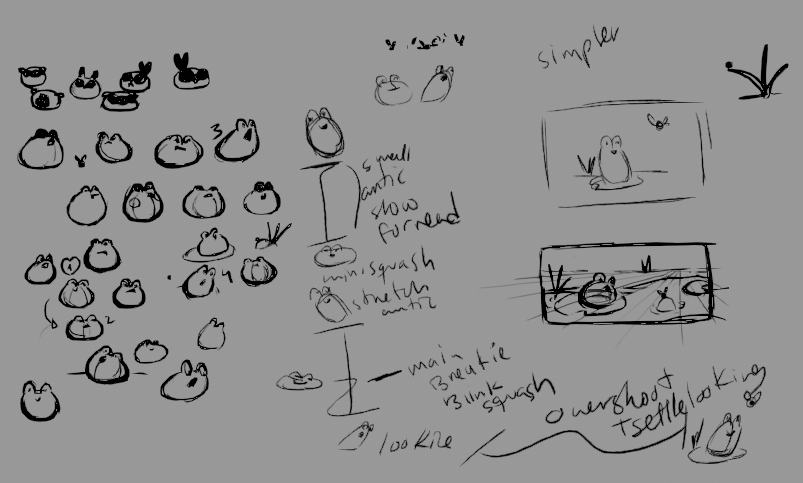 simpler
3
small
antic
slow
forward
mini squash
stretch
antic
4
2
main
Breathe
Blink
squash
overshoot
+settle
looking